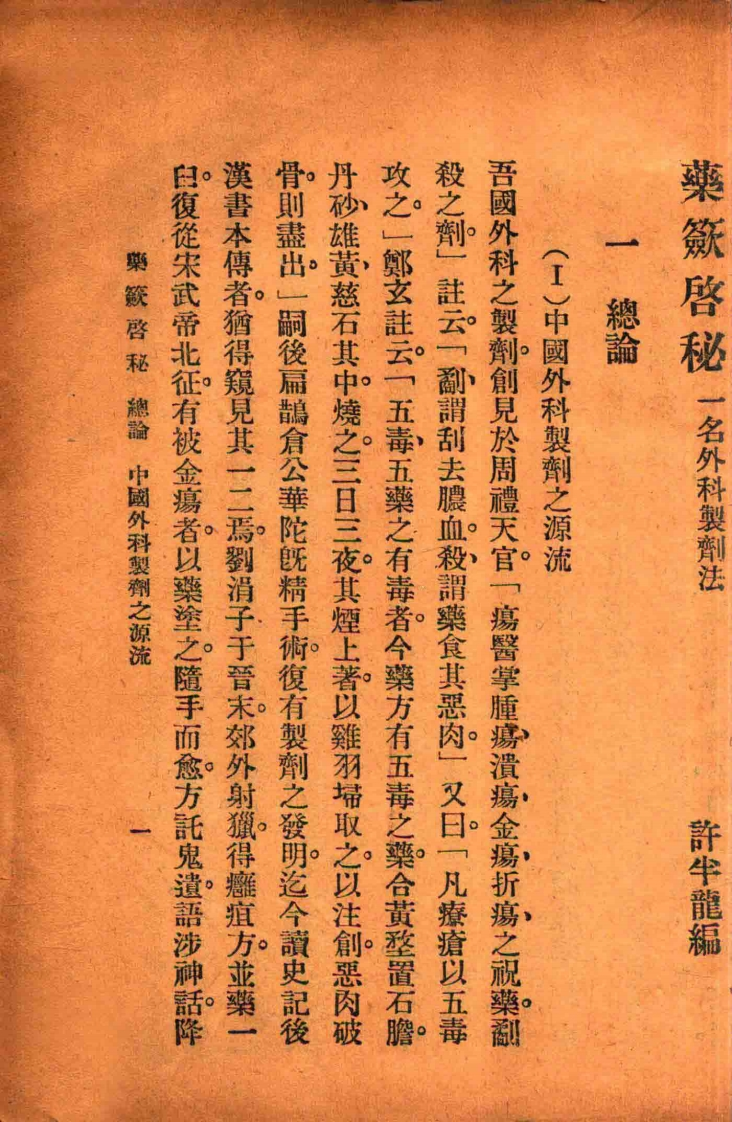 藥籢啓秘 一名外科製劑法 許半龍編
一 總論
（I）中國外科製劑之源流
吾國外科之製劑。創見於周禮天官。「瘍醫掌腫瘍、潰瘍、金瘍、折瘍、之祝藥。劀
殺之劑。」註云。「劀、謂刮去膿血。殺、謂藥食其惡肉。」又曰。「凡療瘡以五毒
攻之。」鄭玄註云。「五毒、五藥之有毒者。今藥方有五毒之藥。合黃堥置石膽。
丹砂、雄黃、慈石其中。燒之三日三夜。其煙上著。以雞羽埽取之。以注創。惡肉破
骨。則盡出。」嗣後扁鵲倉公華陀旣精手術。復有製劑之發明。迄今讀史記後
漢書本傳者。猶得窺見其一二焉。劉涓子于晉末。郊外射獵。得癰疽方。並藥一
臼。復從宋武帝北征。有被金瘍者。以藥塗之。隨手而愈。方託鬼遺。語涉神話。降
藥籢啓秘 總論 中國外科製劑之源流 一